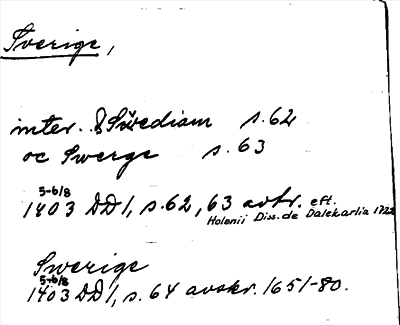 Sverige,
inter. & Swediam s. 62
oc Swerge s. 63
5-6/8
1403 DD 1, s. 62, 63 avtr. eft.
Holenii Diss. de Dalekarlia 1722
Swerige
5-6/8
1403 DD 1, s. 64 avskr. 1651-80.